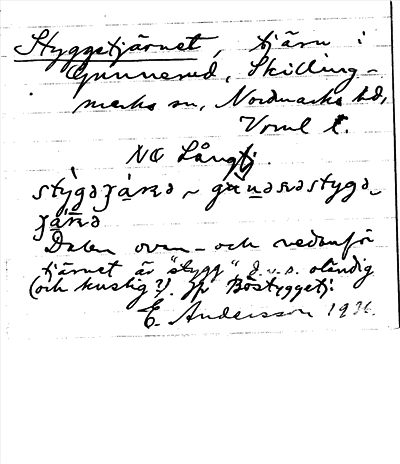 Styggetjärnet, tjärn i
Gunnerud, Skilling-
marks sn, Nordmarks hd,
Vrml l.
NO Långtj.
Dalen ovan- och nedanför
tjärnet är "stygg", d.v.s. oländig
(och kuslig?). Jfr Böstyggetj.
E. Andersson 1936.